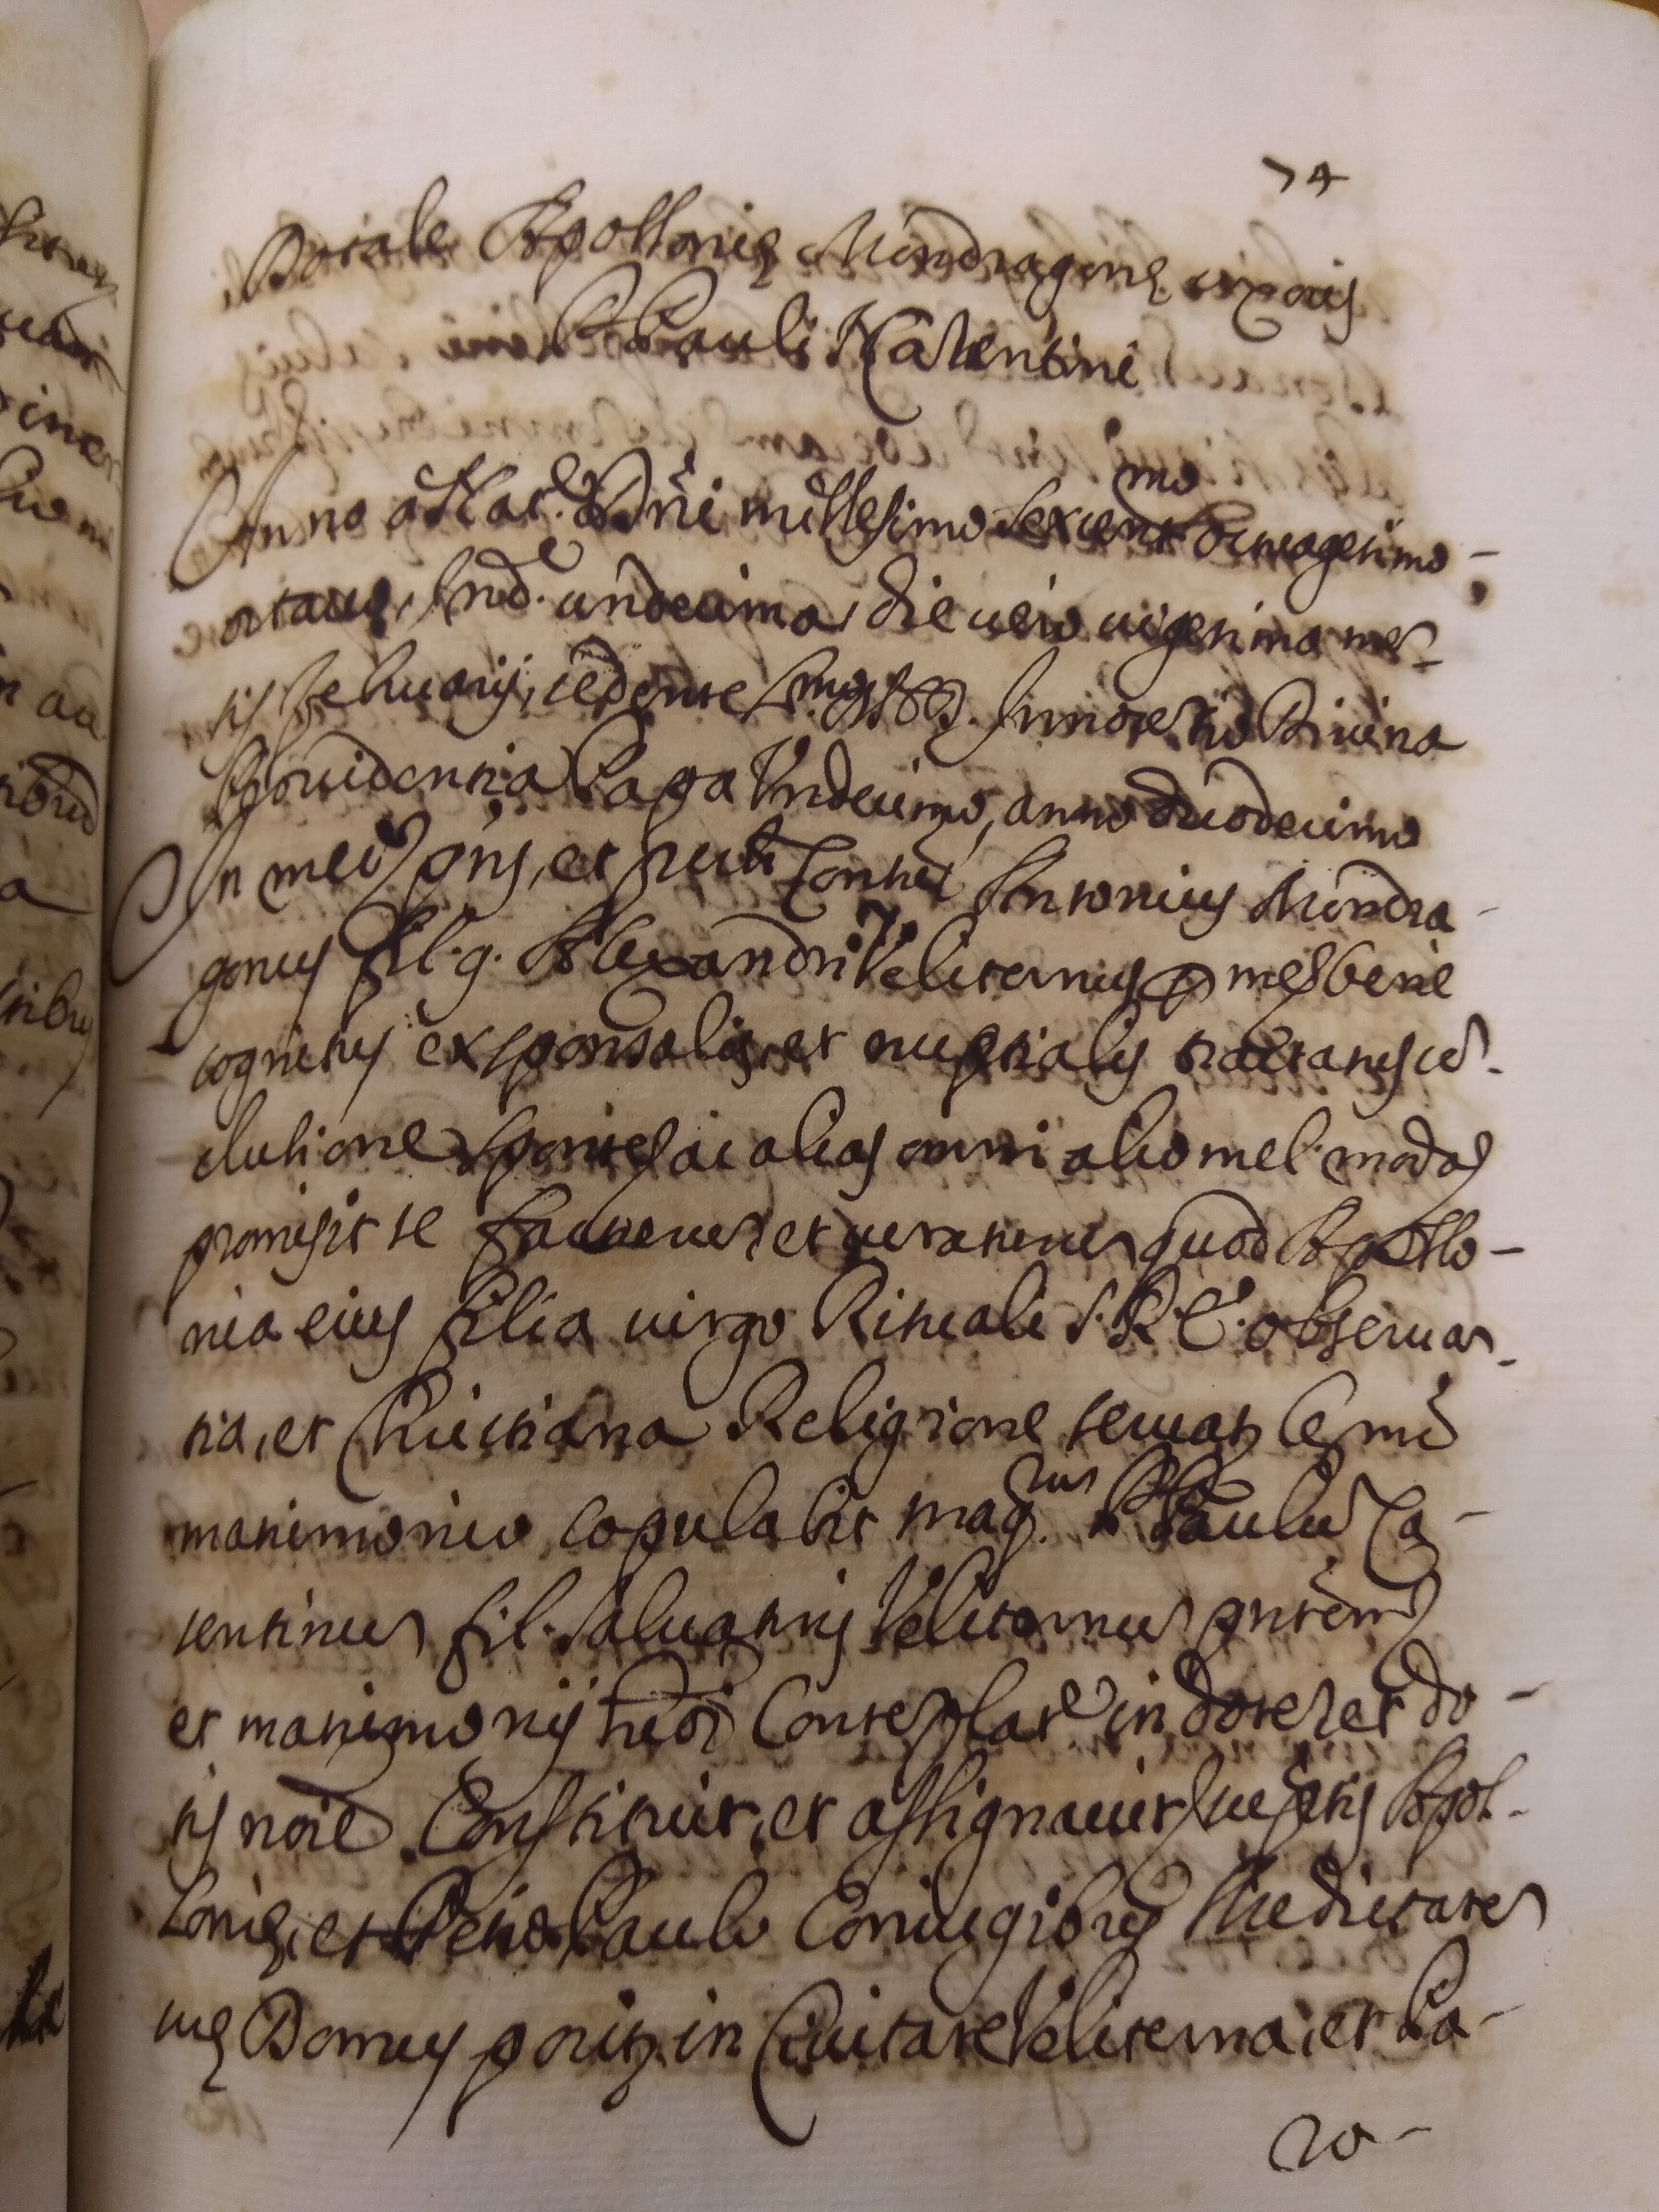 74
Dotale Apollonię Mindragonę uxoris
Pauli Natentini
Anno a Nat.e Dñi millesimo sexcent.mo octuagesimo
octauo, Ind.e undecima, die uero uigesima men-
sis februarij, sedente Innocentio Diuina
Prouidentia Papa Undecimo, anno duodecimo
In mei pñs, et Antonius Mindra-
gonus fil. q. Alexandri Veliternus mihi bene
cognitus ex sponsalis, et nuptialis tractatus co-
clusione sponte, ac alias omni alio mel. modo
promisit se facturum et curaturum quod Apollo-
nia eius filia uirgo Rituali S. R. E. observan-
tia, et Christiana Religione seruatis
matrimonio copulabit mag.cum Paulum Ca-
tentinum fil. Saluatoris Veliternum pñtem
et matrimonij in dotem et do-
tis noïe Constituit, et assignauit Apol-
lonię, et Paulo Coniugibus Medietatem
unę Domus positę in Ciuitate Veliterna, et Pa-
ro-